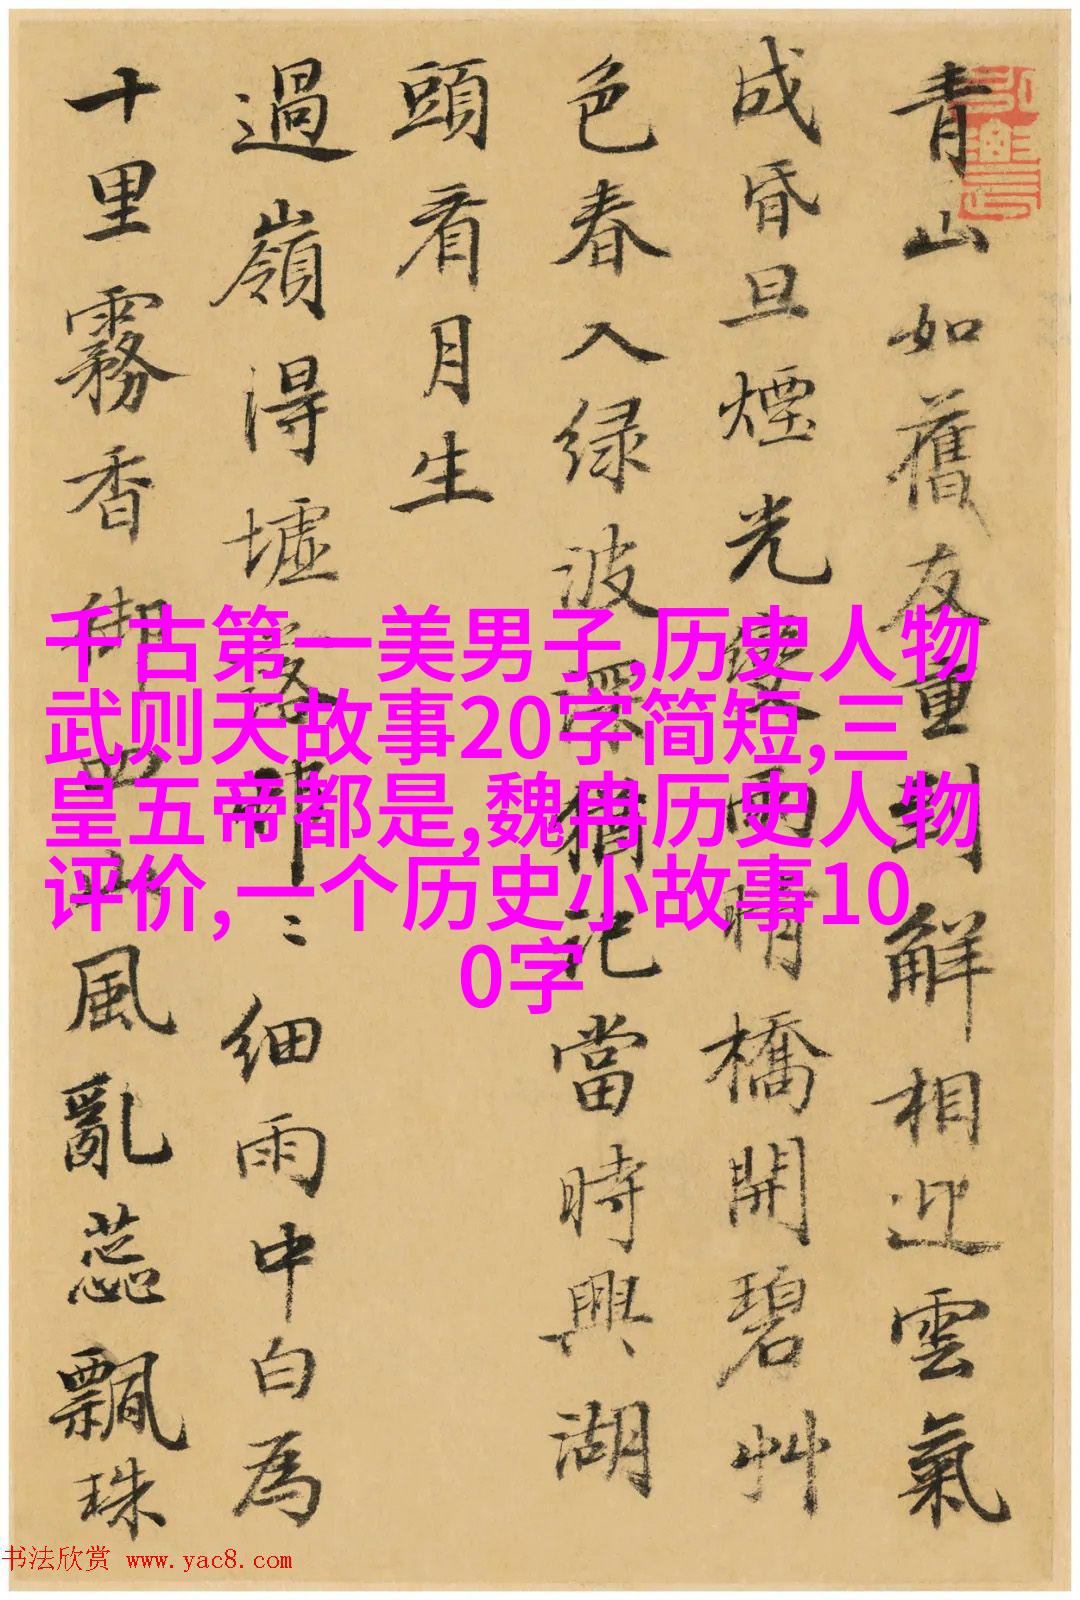 青山如舊友重對解相迎雲氣
成昏旦煙光變雨晴橋開碧艸
色春入緑波深猶記當時興湖
頭看月生
過嶺得墟落邨〻細雨中白為
十里霧香御山風亂蕊飄珠
千古第一美男子,历史人物
武则天故事20字简短,三
皇五帝都是,魏冉历史人物
评价,一个历史小故事10
0字
书法欣赏 www.yac8.com